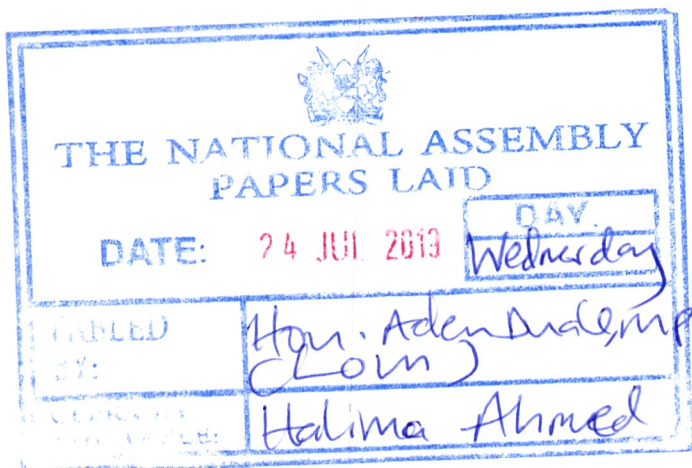 THE NATIONAL ASSEMBLY
PAPERS LAID
DATE: 24 JUL 2019
DAY
Wednesday
TABLED
BY:
Hon. Aden Duale, MP
(LOM)
Halima Ahmed